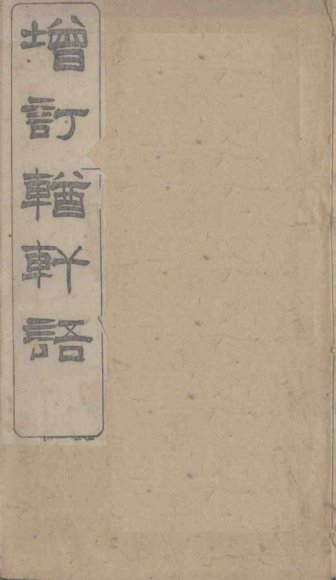 增訂輶軒語